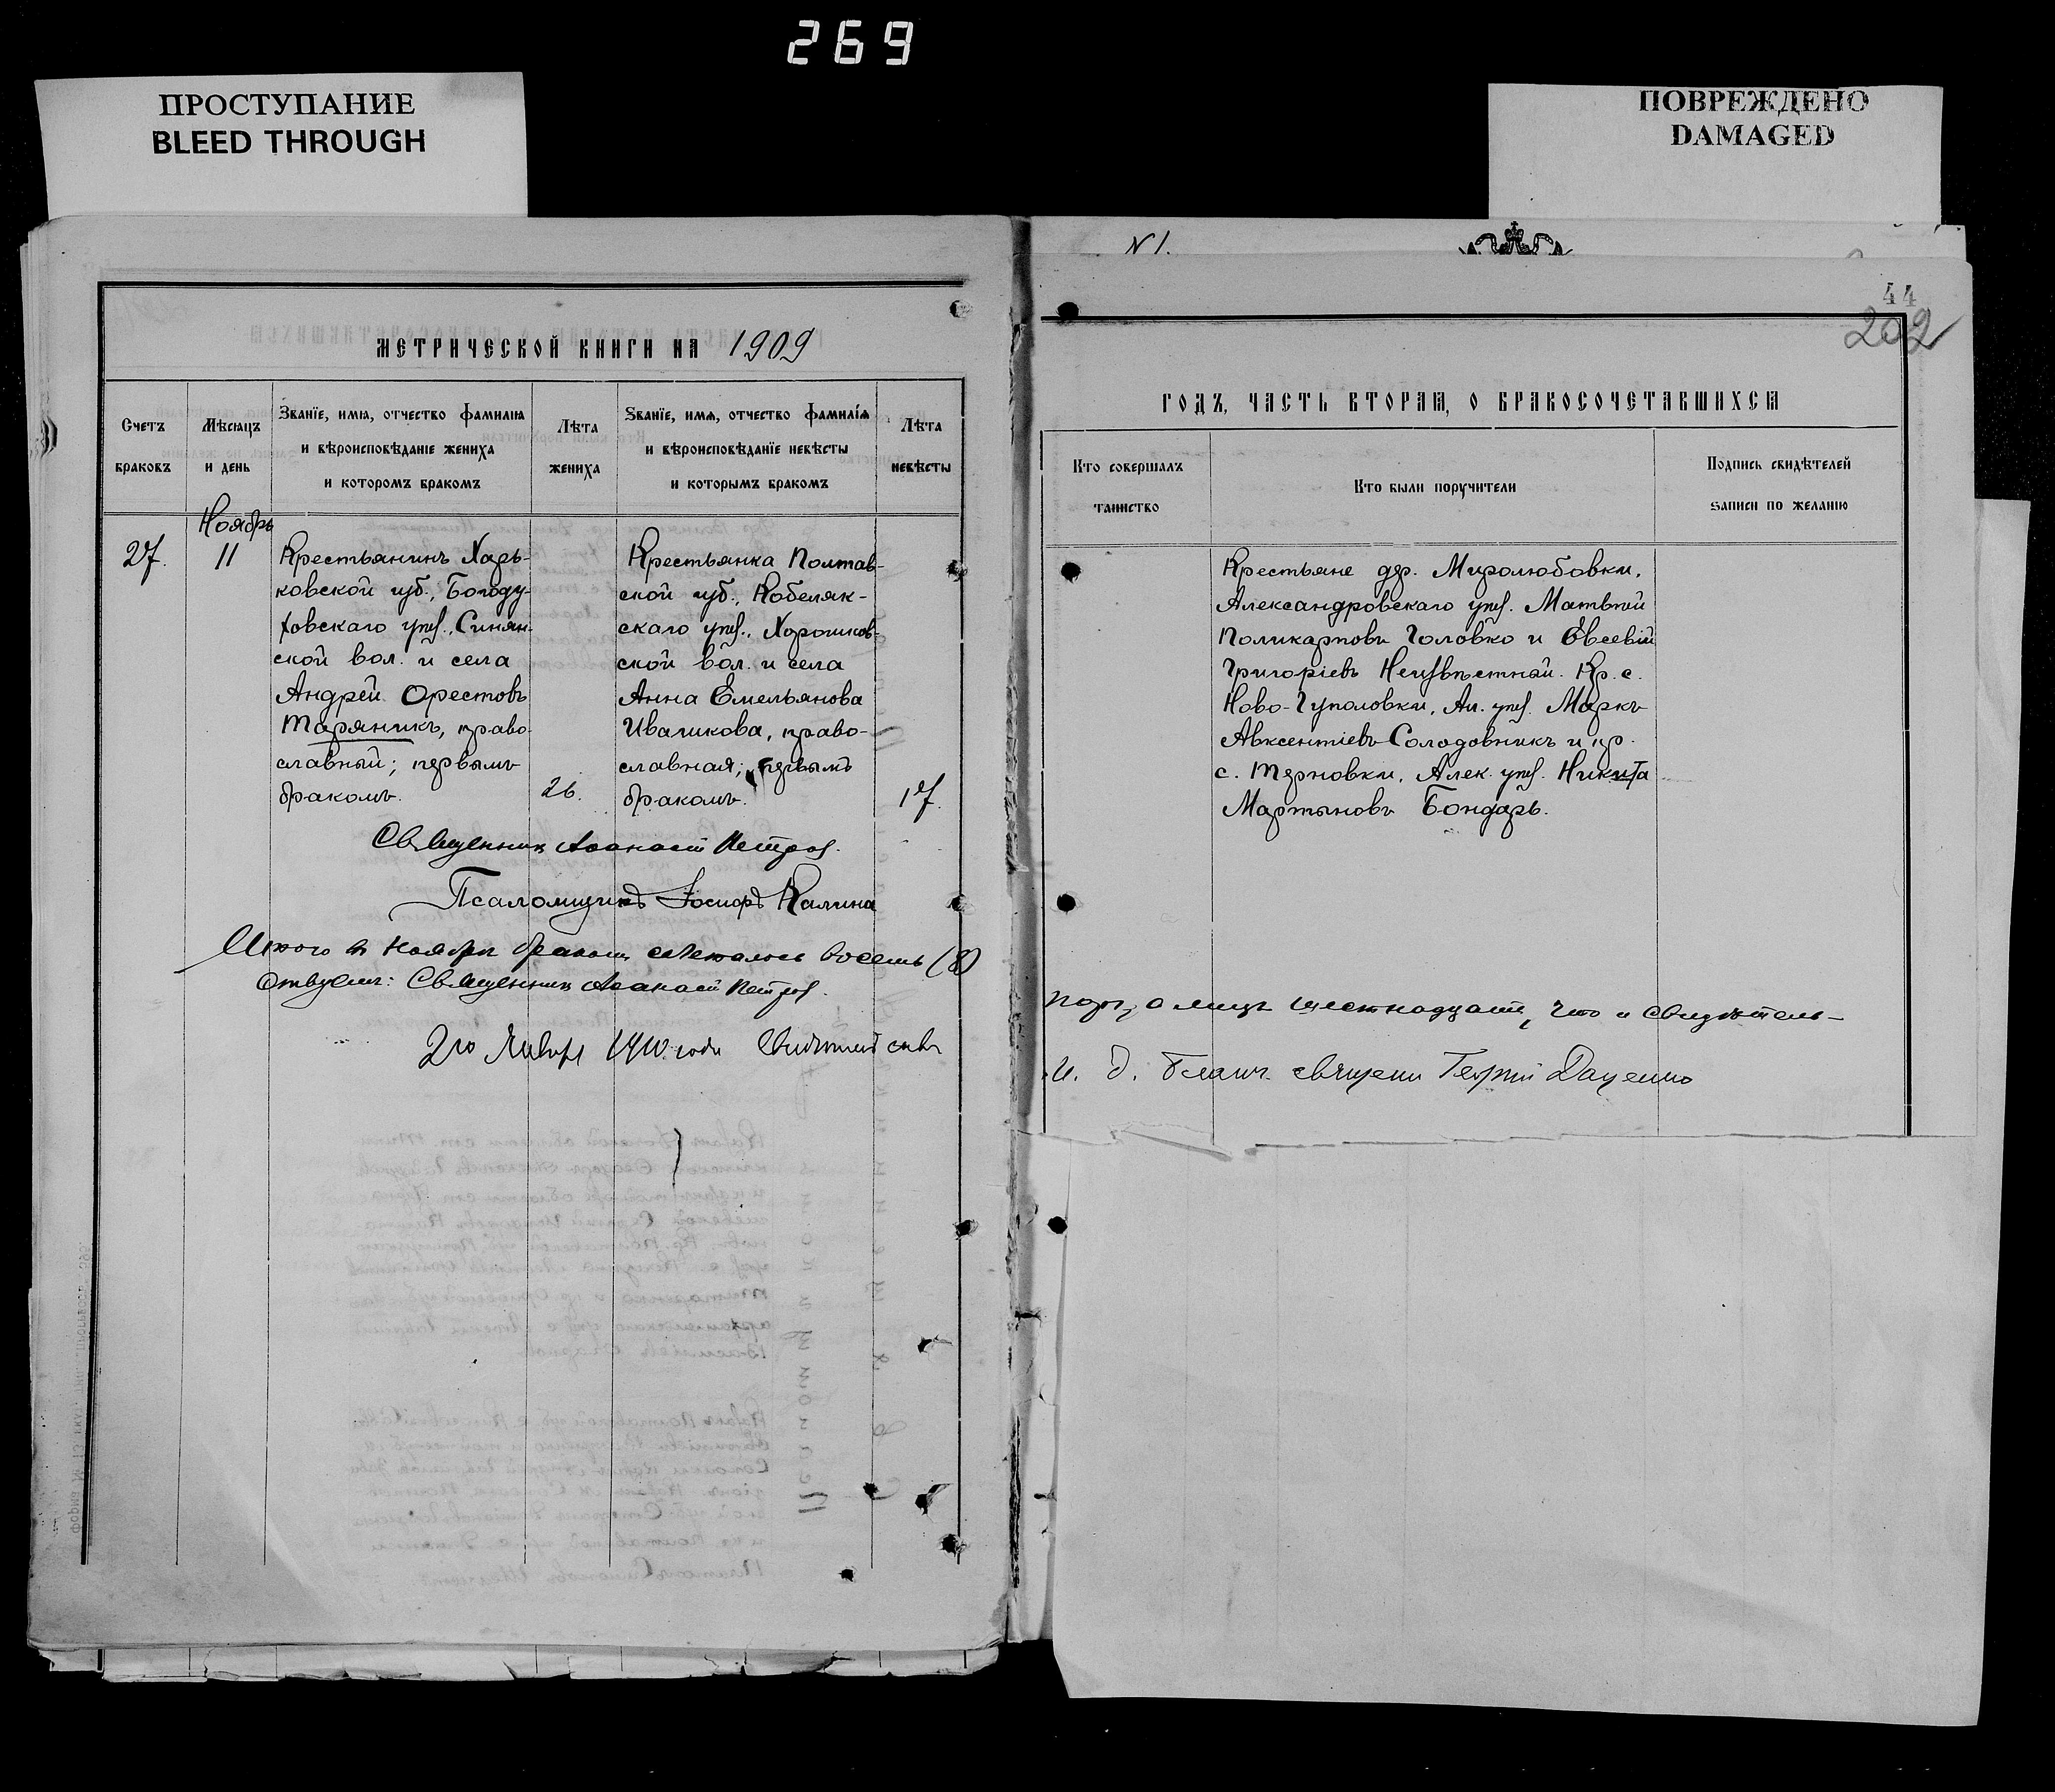 269
ПРОСТУПАНИЕ
BLEED THROUGH
ПОВРЕЖДЕНО
DAMAGED
МЕТРИЧЕСКОЙ КНИГИ НА 1909
Счетъ браковъ
Мѣсяцъ и день
Званіе, имя, отчество фамилія
и вѣроисповѣданіе жениха
и которомъ бракомъ
Лѣта жениха
Званіе, имя, отчество фамилія
и вѣроисповѣданіе невѣсты
и которымъ бракомъ
Лѣта невѣсты
Ноябрь
27. 11
Крестьянинъ Харь-
ковской губ., Богоду-
ховскаго уѣз., Синян-
ской вол. и села
Андрей Орестовъ
Таряникъ, право-
славный; первымъ
бракомъ.
26.
Крестьянка Полтав-
ской губ., Кобеляк-
скаго уѣз.,
ской вол. и села
Анна Емельянова
Ивашкова, право-
славная; первымъ
бракомъ.
17.
Священник Афанасій Петров.
Псаломщикъ Іосифъ Калина
Итого в Ноябрѣ браком сочеталось восемь (8)
Священник Афанасій Петров.
2го Января 1910 года
N 1.
44
202
ГОДЪ, ЧАСТЬ ВТОРАЯ, О БРАКОСОЧЕТАВШИХСЯ
Кто совершалъ
таинство
Кто были поручители
Подпись свидѣтелей
записи по желанію
Крестьяне дер. Миролюбовки,
Александровскаго уѣз. Матвѣй
Поликарповъ Головко и Евсевій
Григоріевъ Неизвѣстный. Кр. с.
Ново-Гуполовки, Ал. уѣз. Маркъ
Авксентіевъ Солодовникъ и кр.
с. Терновки, Алек. уѣз. Никита
Мартыновъ Бондарь.
паръ, а лицъ шестнадцать, что и свидѣтель-
И. д. Благоч. священ Георгій Даценко